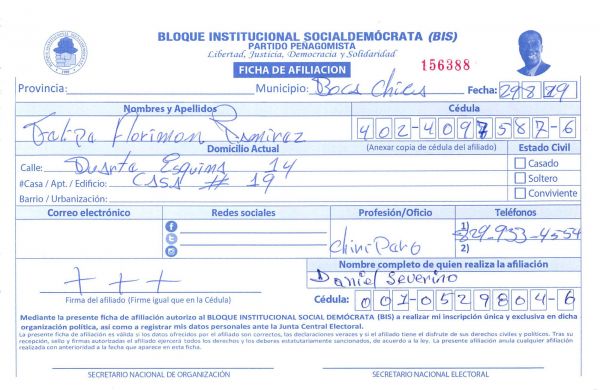 BLOQUE INSTITUCIONAL SOCIALDEMÓCRATA (BIS)
PARTIDO PEÑAGOMISTA
Libertad, Justicia, Democracia y Solidaridad
FICHA DE AFILIACION
156388
Provincia: Municipio: Boca Chica Fecha: 29 8 19
Nombres y Apellidos Cédula
Florimon Ramirez 402-4097587-6
Domicilio Actual (Anexar copia de cédula del afiliado) Estado Civil
Calle: Duarte Esquina 14 Casado
#Casa / Apt. / Edificio: Casa # 19 Soltero
Barrio / Urbanización: Conviviente
Correo electrónico Redes sociales Profesión/Oficio Teléfonos
1) 829-933-4554
2)
Nombre completo de quien realiza la afiliación
+ + + Daniel Severino
Firma del afiliado (Firme igual que en la Cédula) Cédula: 001-0529804-6
Mediante la presente ficha de afiliación autorizo al BLOQUE INSTITUCIONAL SOCIAL DEMÓCRATA (BIS) a realizar mi inscripción única y exclusiva en dicha
organización política, así como a registrar mis datos personales ante la Junta Central Electoral.
La presente ficha de afiliación es válida si los datos ofrecidos por el afiliado son correctos, las declaraciones veraces y si el afiliado tiene el disfrute de sus derechos civiles y políticos. Tras su
recepción, sello y firmas autorizadas el afiliado ejercerá todos los derechos y los deberes estatutariamente sancionados, de acuerdo a la ley. La presente afiliación anula cualquier afiliación
realizada con anterioridad a la fecha que aparece en esta ficha.
SECRETARIO NACIONAL DE ORGANIZACIÓN SECRETARIO NACIONAL ELECTORAL